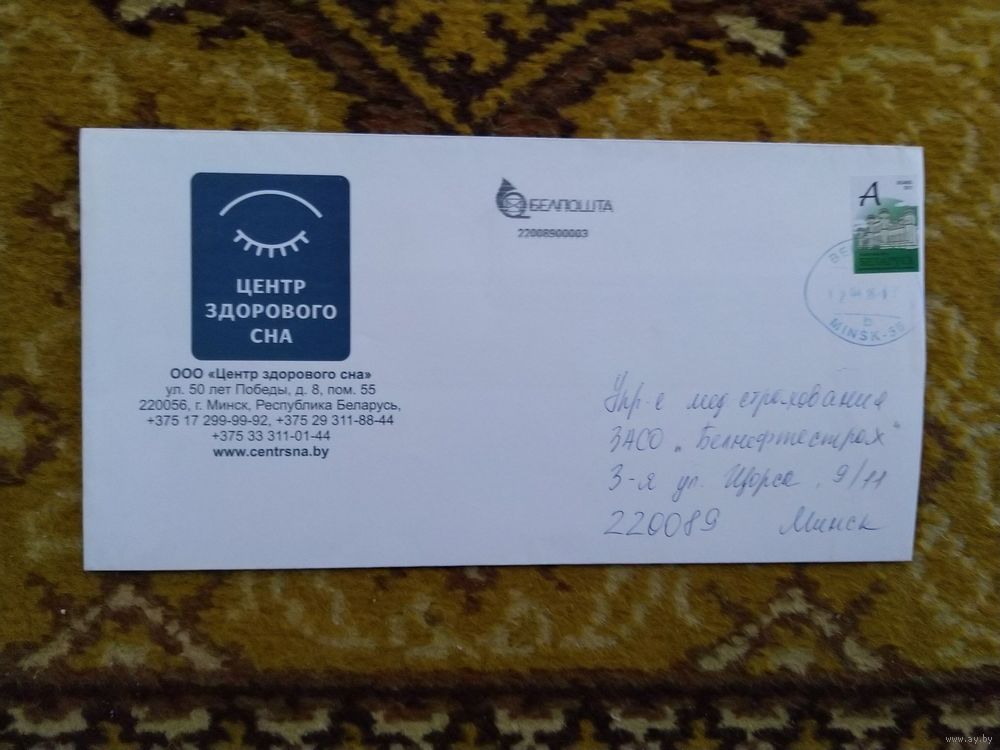 ЦЕНТР
ЗДОРОВОГО
СНА
ООО «Центр здорового сна»
ул. 50 лет Победы, д. 8, пом. 55
220056, г. Минск, Республика Беларусь,
+375 17 299-99-92, +375 29 311-88-44
+375 33 311-01-44
www.centrsna.by
БЕЛПОШТА
22008900003
A
MINSK-
Упр-е мед страхования
ЗАСО „Белнефтестрах"
3-я ул. Щорса, 9/11
220089 Минск
www.ay.by